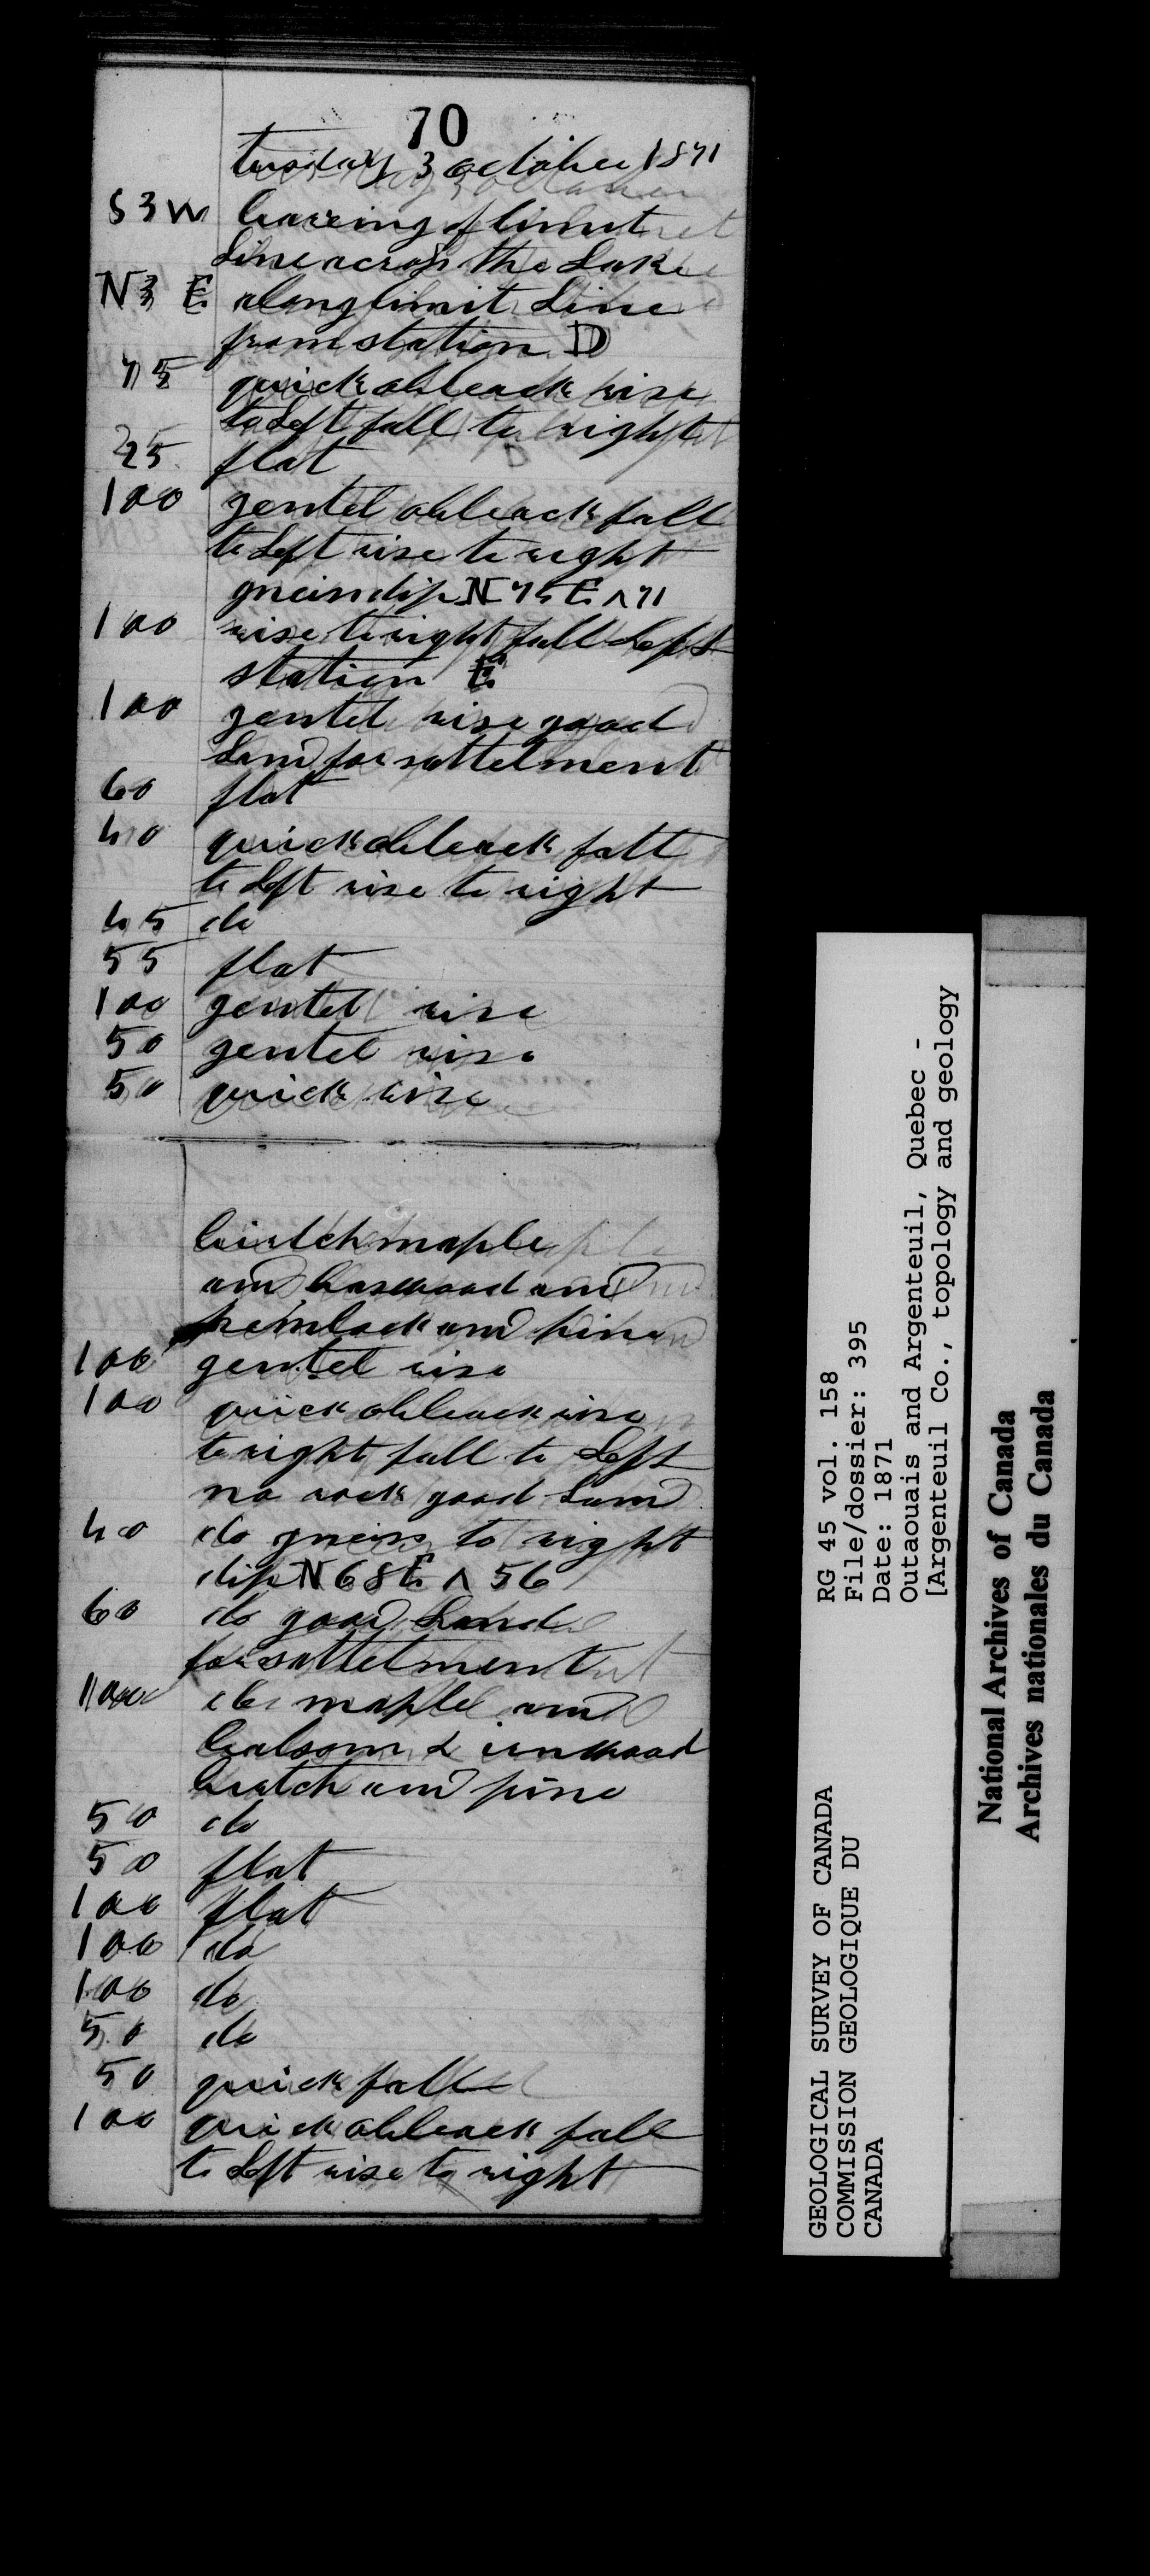 70
tusday 3 october 1871
S 3 W bearing of limit
Line across the Lake
N 3 E along limit Line
from station D
75 quick obleack rise
to Left fall to right
25 flat
100 gentel obleack fall
to Left rise to right
gneiss dip N 75 E ^ 71
100 rise to right fall Left
station E
100 gentel rise good
Land for sattelment
60 flat
40 quick obleack fall
to Left rise to right
45 do
55 flat
100 gentel rise
50 gentel rise
50 quick rise
birtch maple
and baswood and
hemlock and pine
100 gentel rise
100 quick obleack rise
to right fall to Left
no rock good Land
40 do gneiss to right
dip N 68 E ^ 56
60 do good Land
for sattelment
100 do maple and
balsom & irnwood
birtch and pine
50 do
50 flat
100 flat
100 do
100 do
50 do
50 quick fall
100 quick obleack fall
to Left rise to right
GEOLOGICAL SURVEY OF CANADA
COMMISSION GEOLOGIQUE DU
CANADA
RG 45 vol. 158
File/dossier: 395
Date: 1871
Outaouais and Argenteuil, Quebec -
[Argenteuil Co., topology and geology
National Archives of Canada
Archives nationales du Canada